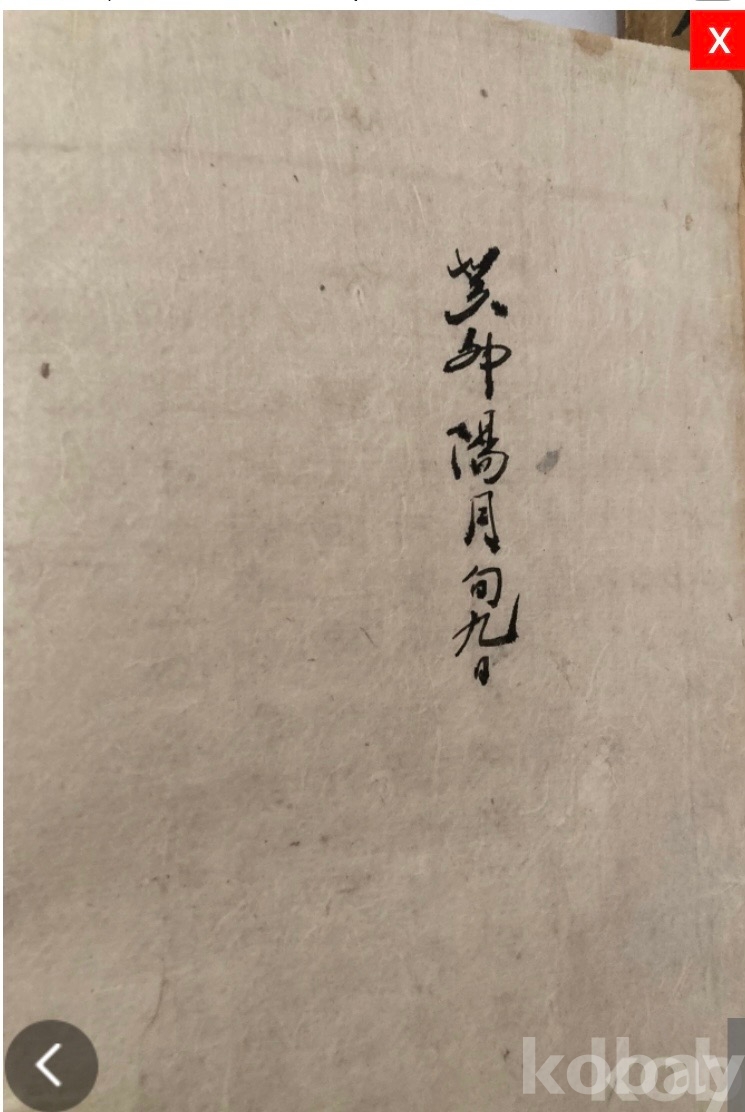 癸卯陽月旬九日
X
kobay